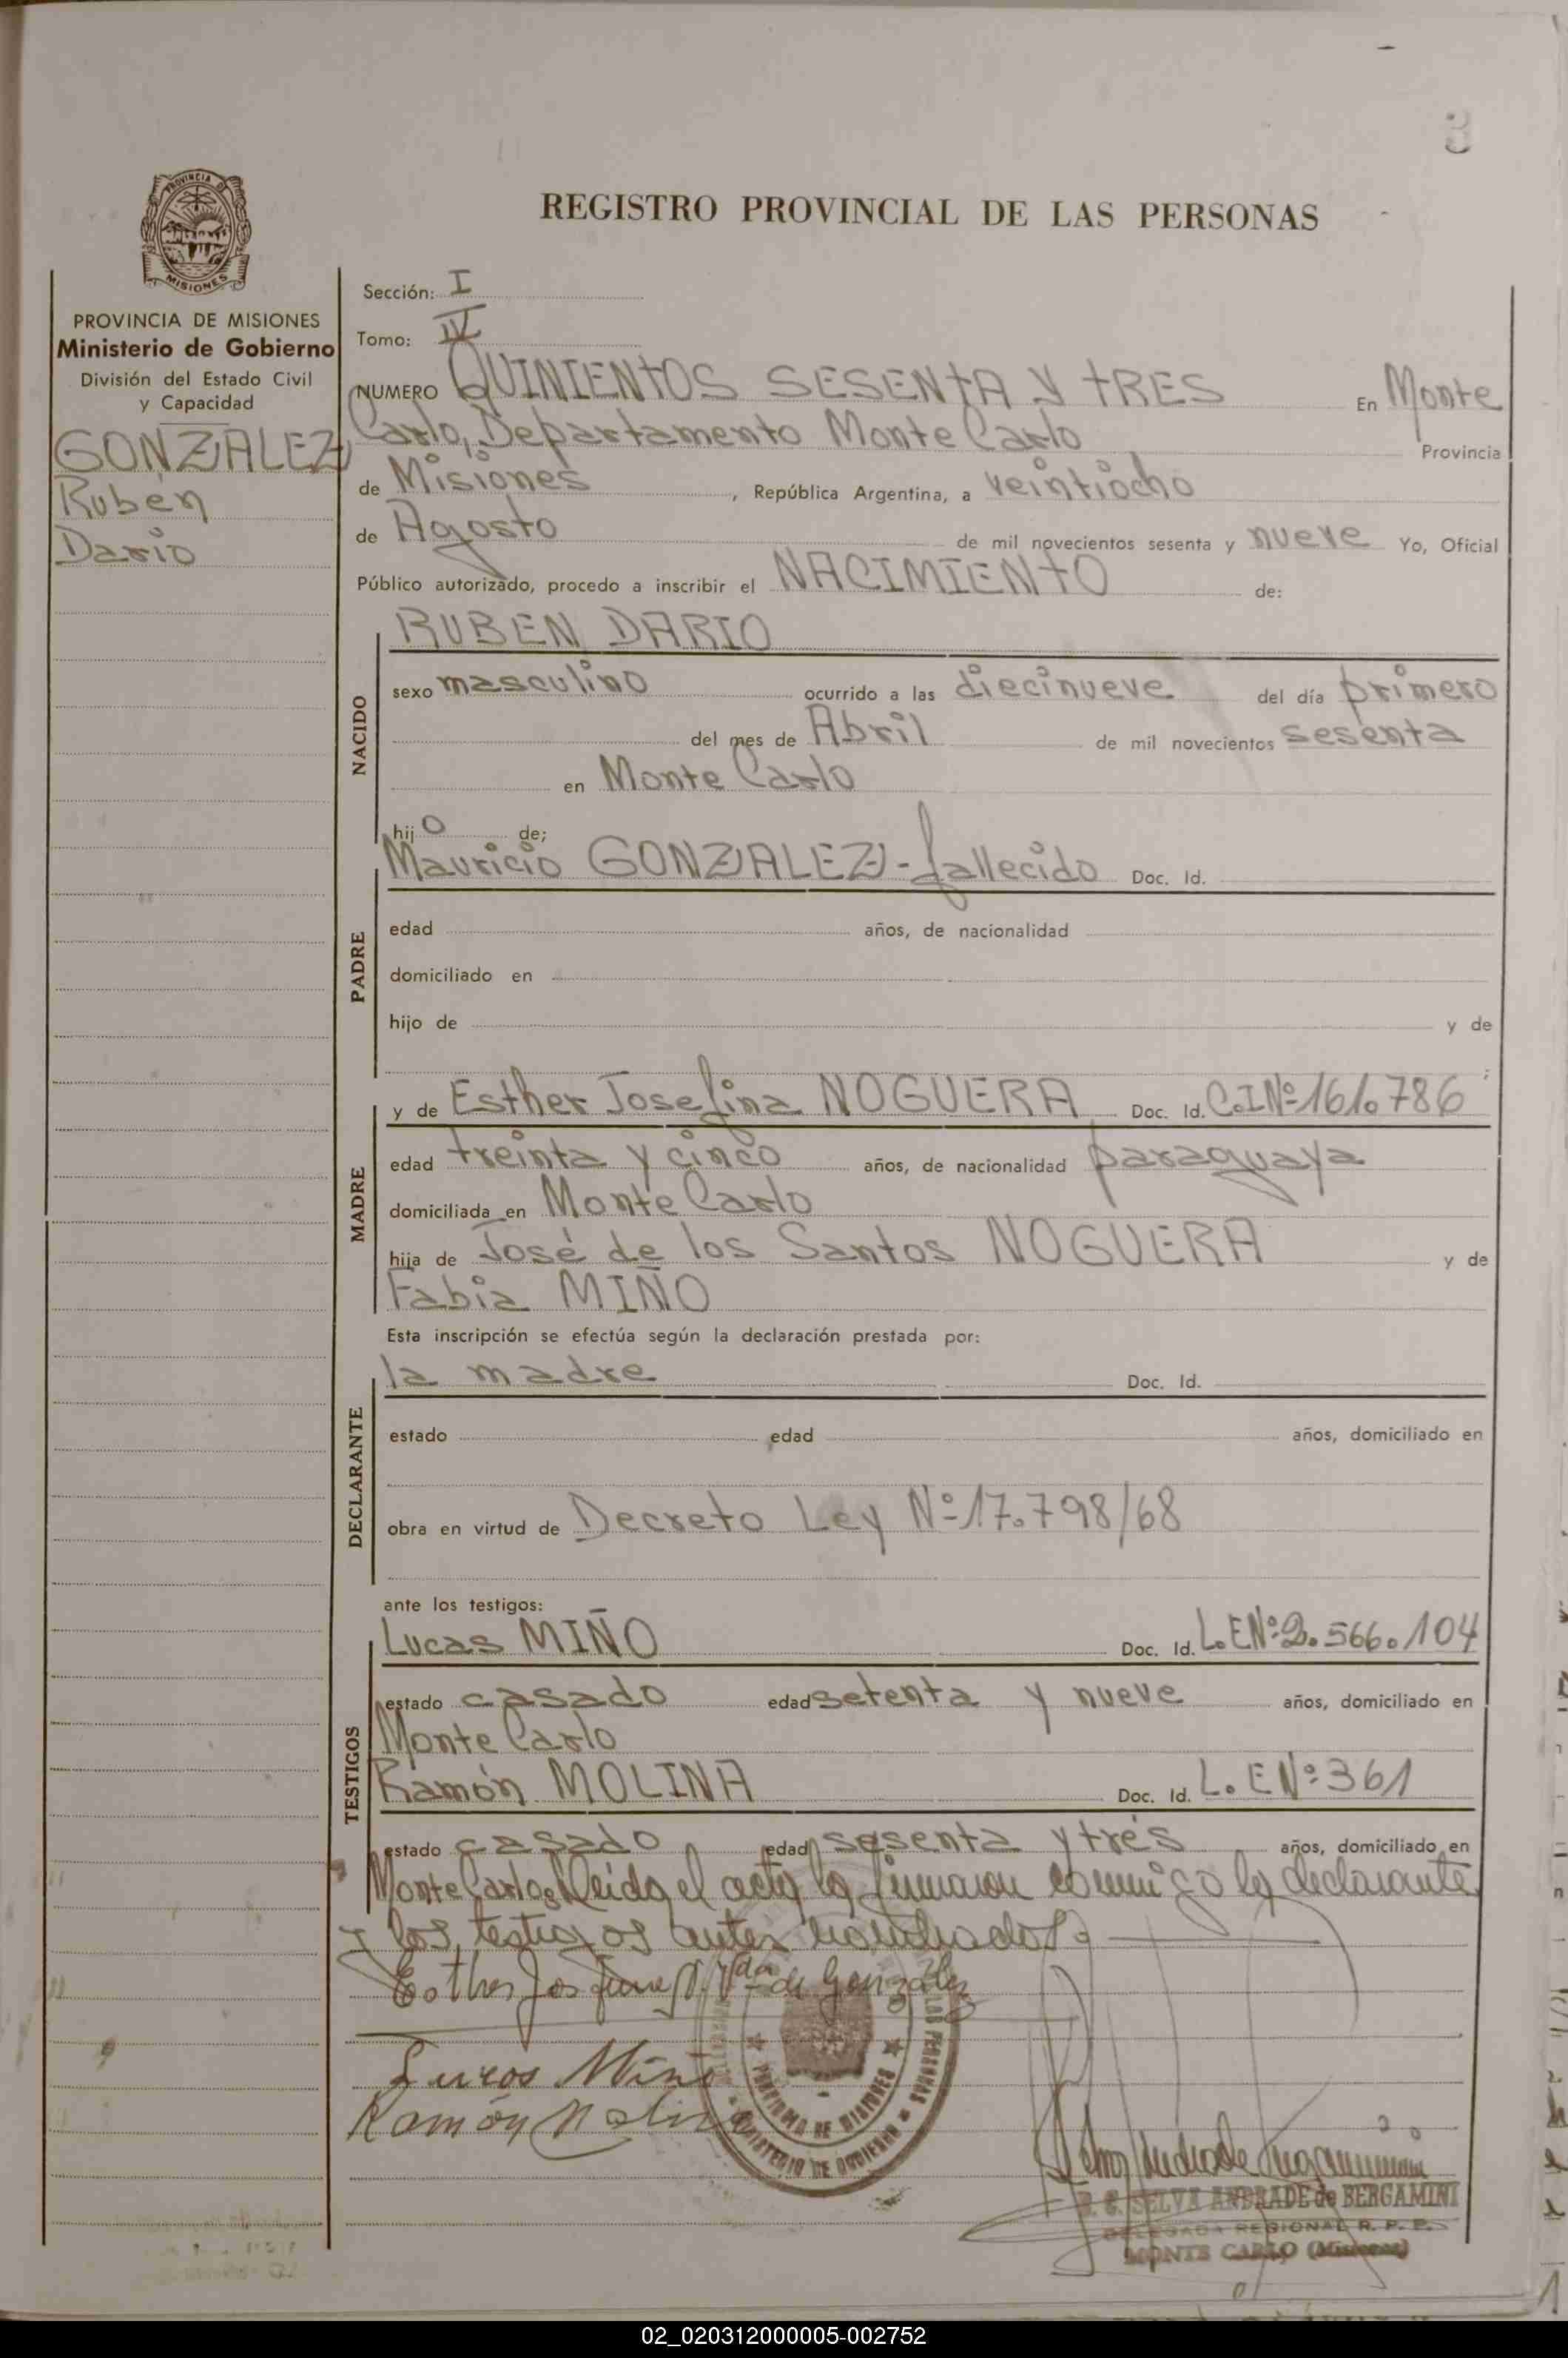 3
PROVINCIA DE
MISIONES
REGISTRO PROVINCIAL DE LAS PERSONAS
PROVINCIA DE MISIONES
Ministerio de Gobierno
División del Estado Civil
y Capacidad
GONZALEZ
Rubén
Dario
Sección: I
Tomo: IV
NUMERO QUINIENTOS SESENTA Y TRES En Monte
Carlo, Departamento Monte Carlo Provincia
de Misiones, República Argentina, a veintiocho
de Agosto de mil novecientos sesenta y nueve Yo, Oficial
Público autorizado, procedo a inscribir el NACIMIENTO de:
NACIDO
RUBEN DARIO
sexo masculino ocurrido a las diecinueve del día primero
del mes de Abril de mil novecientos sesenta
en Monte Carlo
hijo de;
PADRE
Mauricio GONZALEZ-fallecido Doc. Id.
edad años, de nacionalidad
domiciliado en
hijo de y de
MADRE
y de Esther Josefina NOGUERA Doc. Id. C.I Nº 161.786
edad treinta y cinco años, de nacionalidad paraguaya
domiciliada en Monte Carlo
hija de José de los Santos NOGUERA y de
Fabia MIÑO
Esta inscripción se efectúa según la declaración prestada por:
DECLARANTE
la madre Doc. Id.
estado edad años, domiciliado en
obra en virtud de Decreto Ley Nº 17.798/68
ante los testigos:
TESTIGOS
Lucas MIÑO Doc. Id. L.E Nº 2.566.104
estado casado edad setenta y nueve años, domiciliado en
Monte Carlo
Ramón MOLINA Doc. Id. L.E Nº 361
estado casado edad sesenta y tres años, domiciliado en
Monte Carlo. Leída el acta la firmaron conmigo la declarante
y los testigos antes nombrados.
Esther Josefina N. Vda de González
Lucas Miño
Ramón Molina
PROVINCIA DE MISIONES
MINISTERIO DE GOBIERNO
LAS PERSONAS
SELVA ANDRADE de BERGAMINI
DELEGADA REGIONAL R. P. P.
MONTE CARLO (Misiones)
02_020312000005-002752